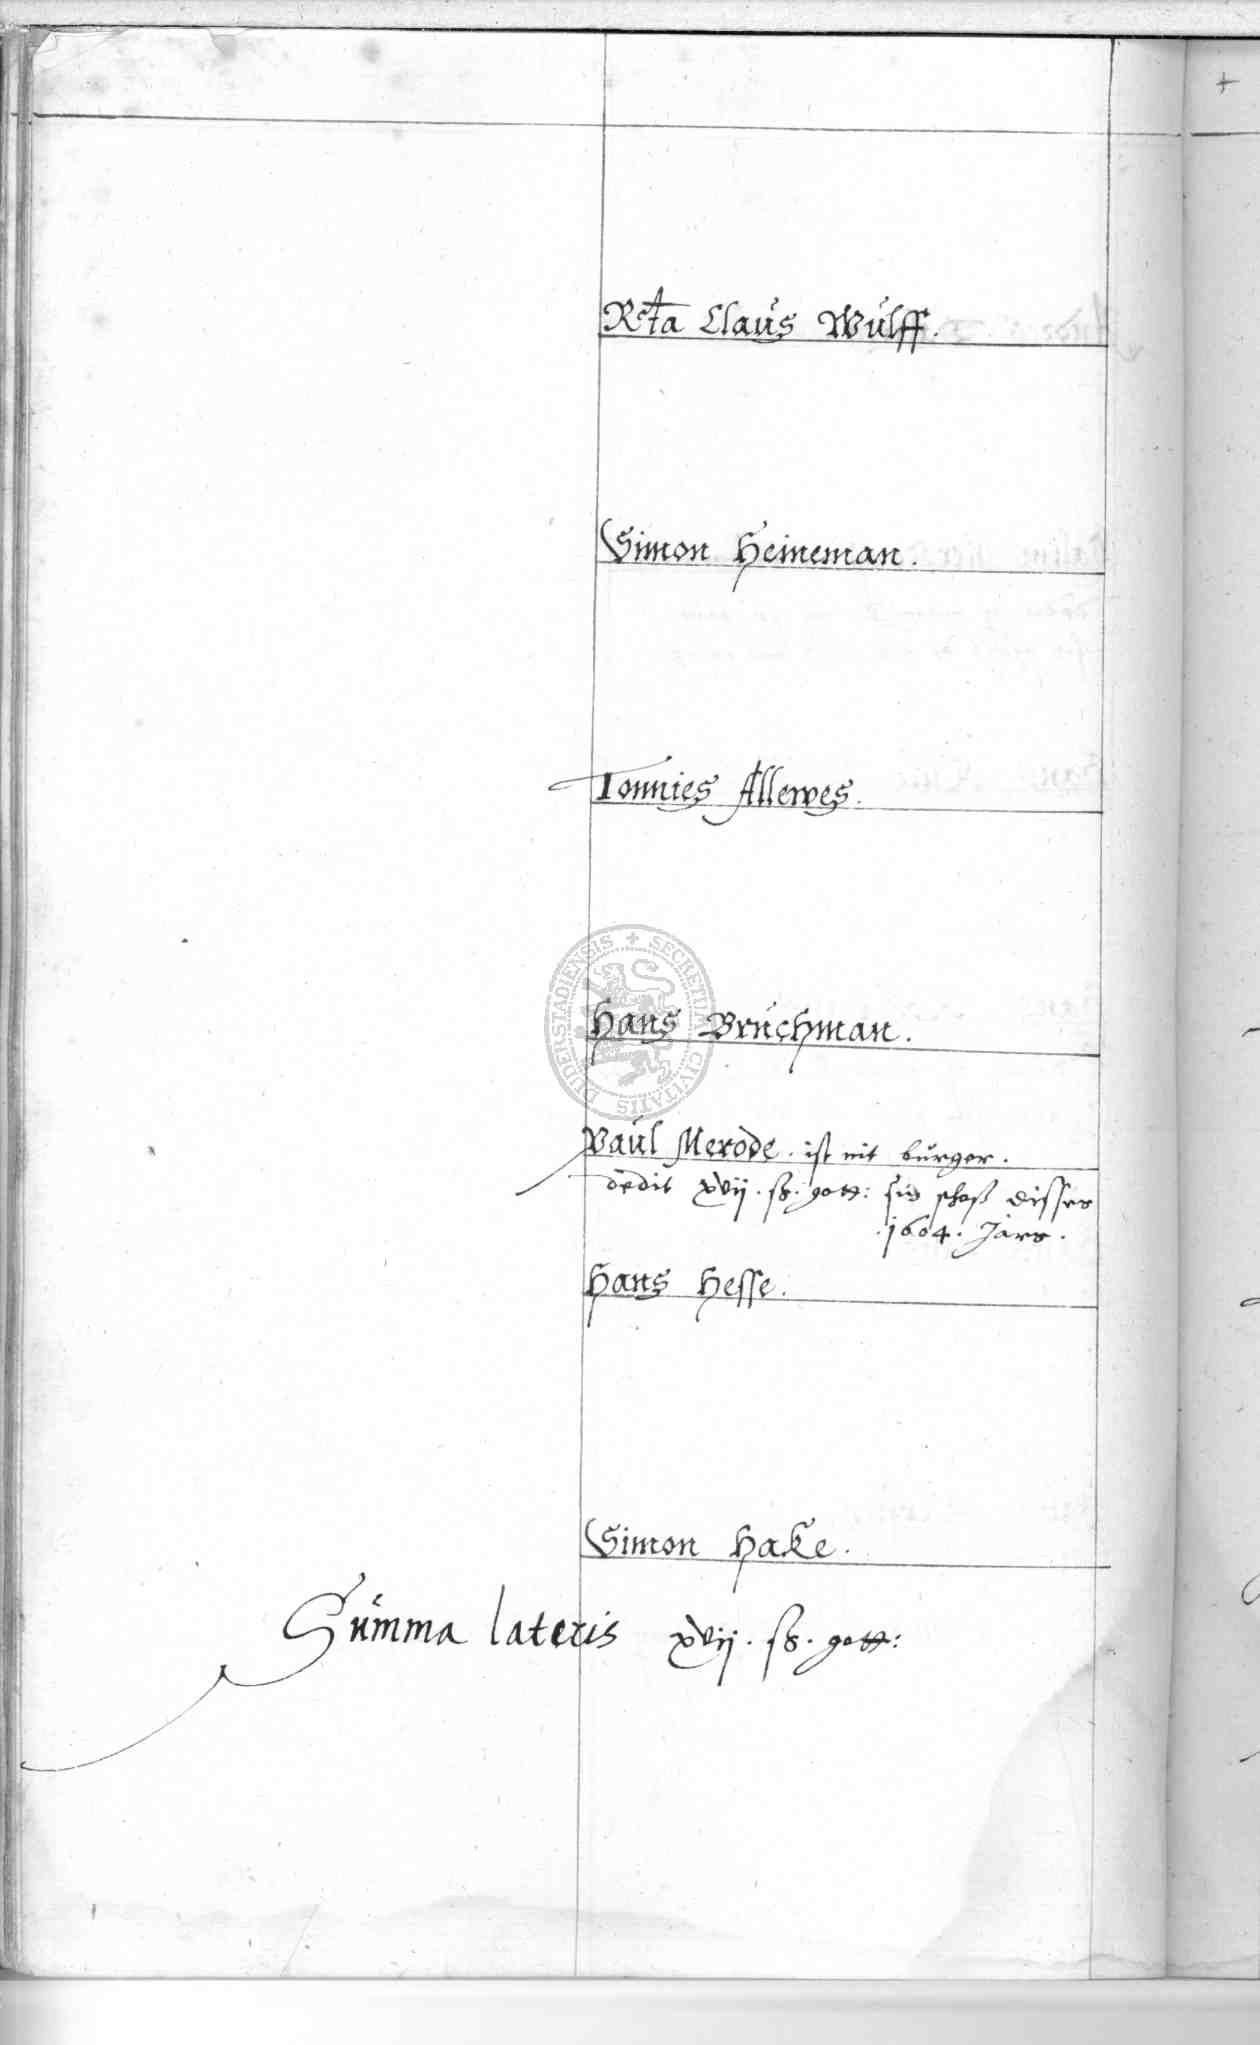 Rcta Claus Wulff.
Simon Heineman.
Tonnies Allewes.
Hans Bruchman.
Paul Merode. ist nit burger.
dedit xvij. ß. gott: sin schoß disses
.1604. Jars.
Hans Hesse.
Simon Hake.
Summa lateris xvij. ß. gott:
SECRETUM CIVITATIS DUDERSTADIENSIS